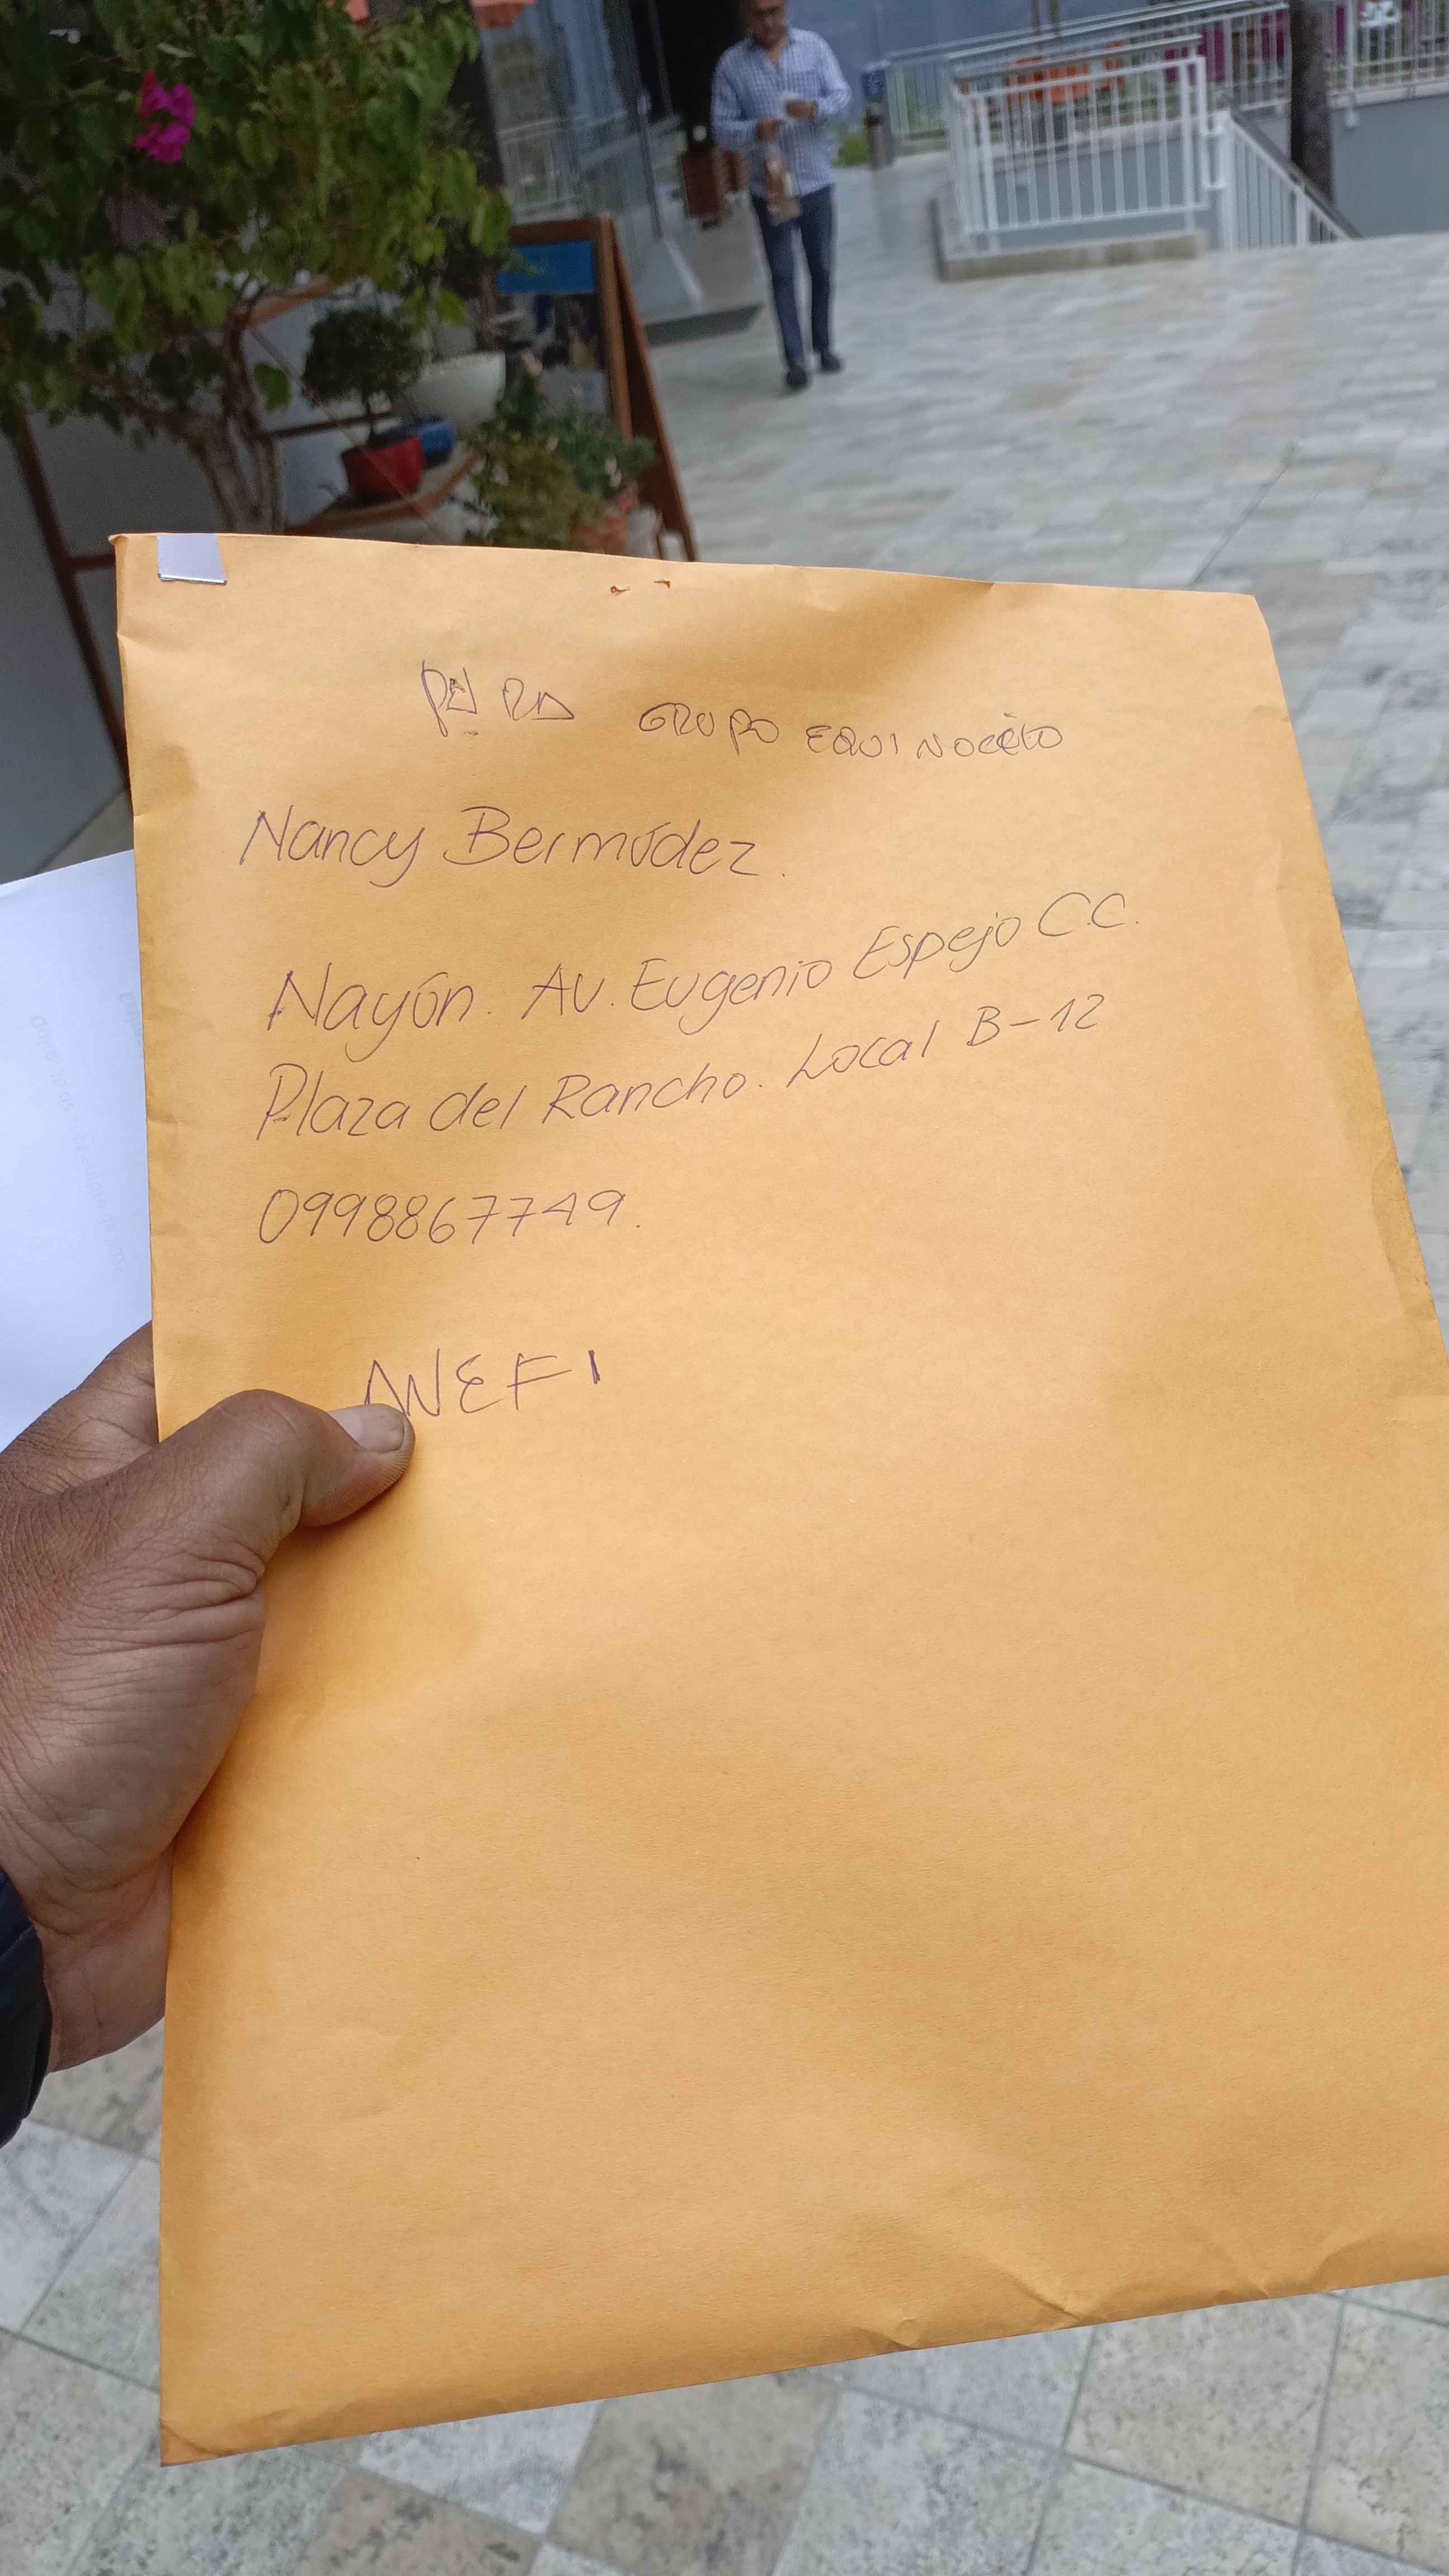 PARA GRUPO EQUINOCCIO
Nancy Bermúdez.
Nayón. Av. Eugenio Espejo C.C.
Plaza del Rancho. Local B-12
0998867749.
ANEFI